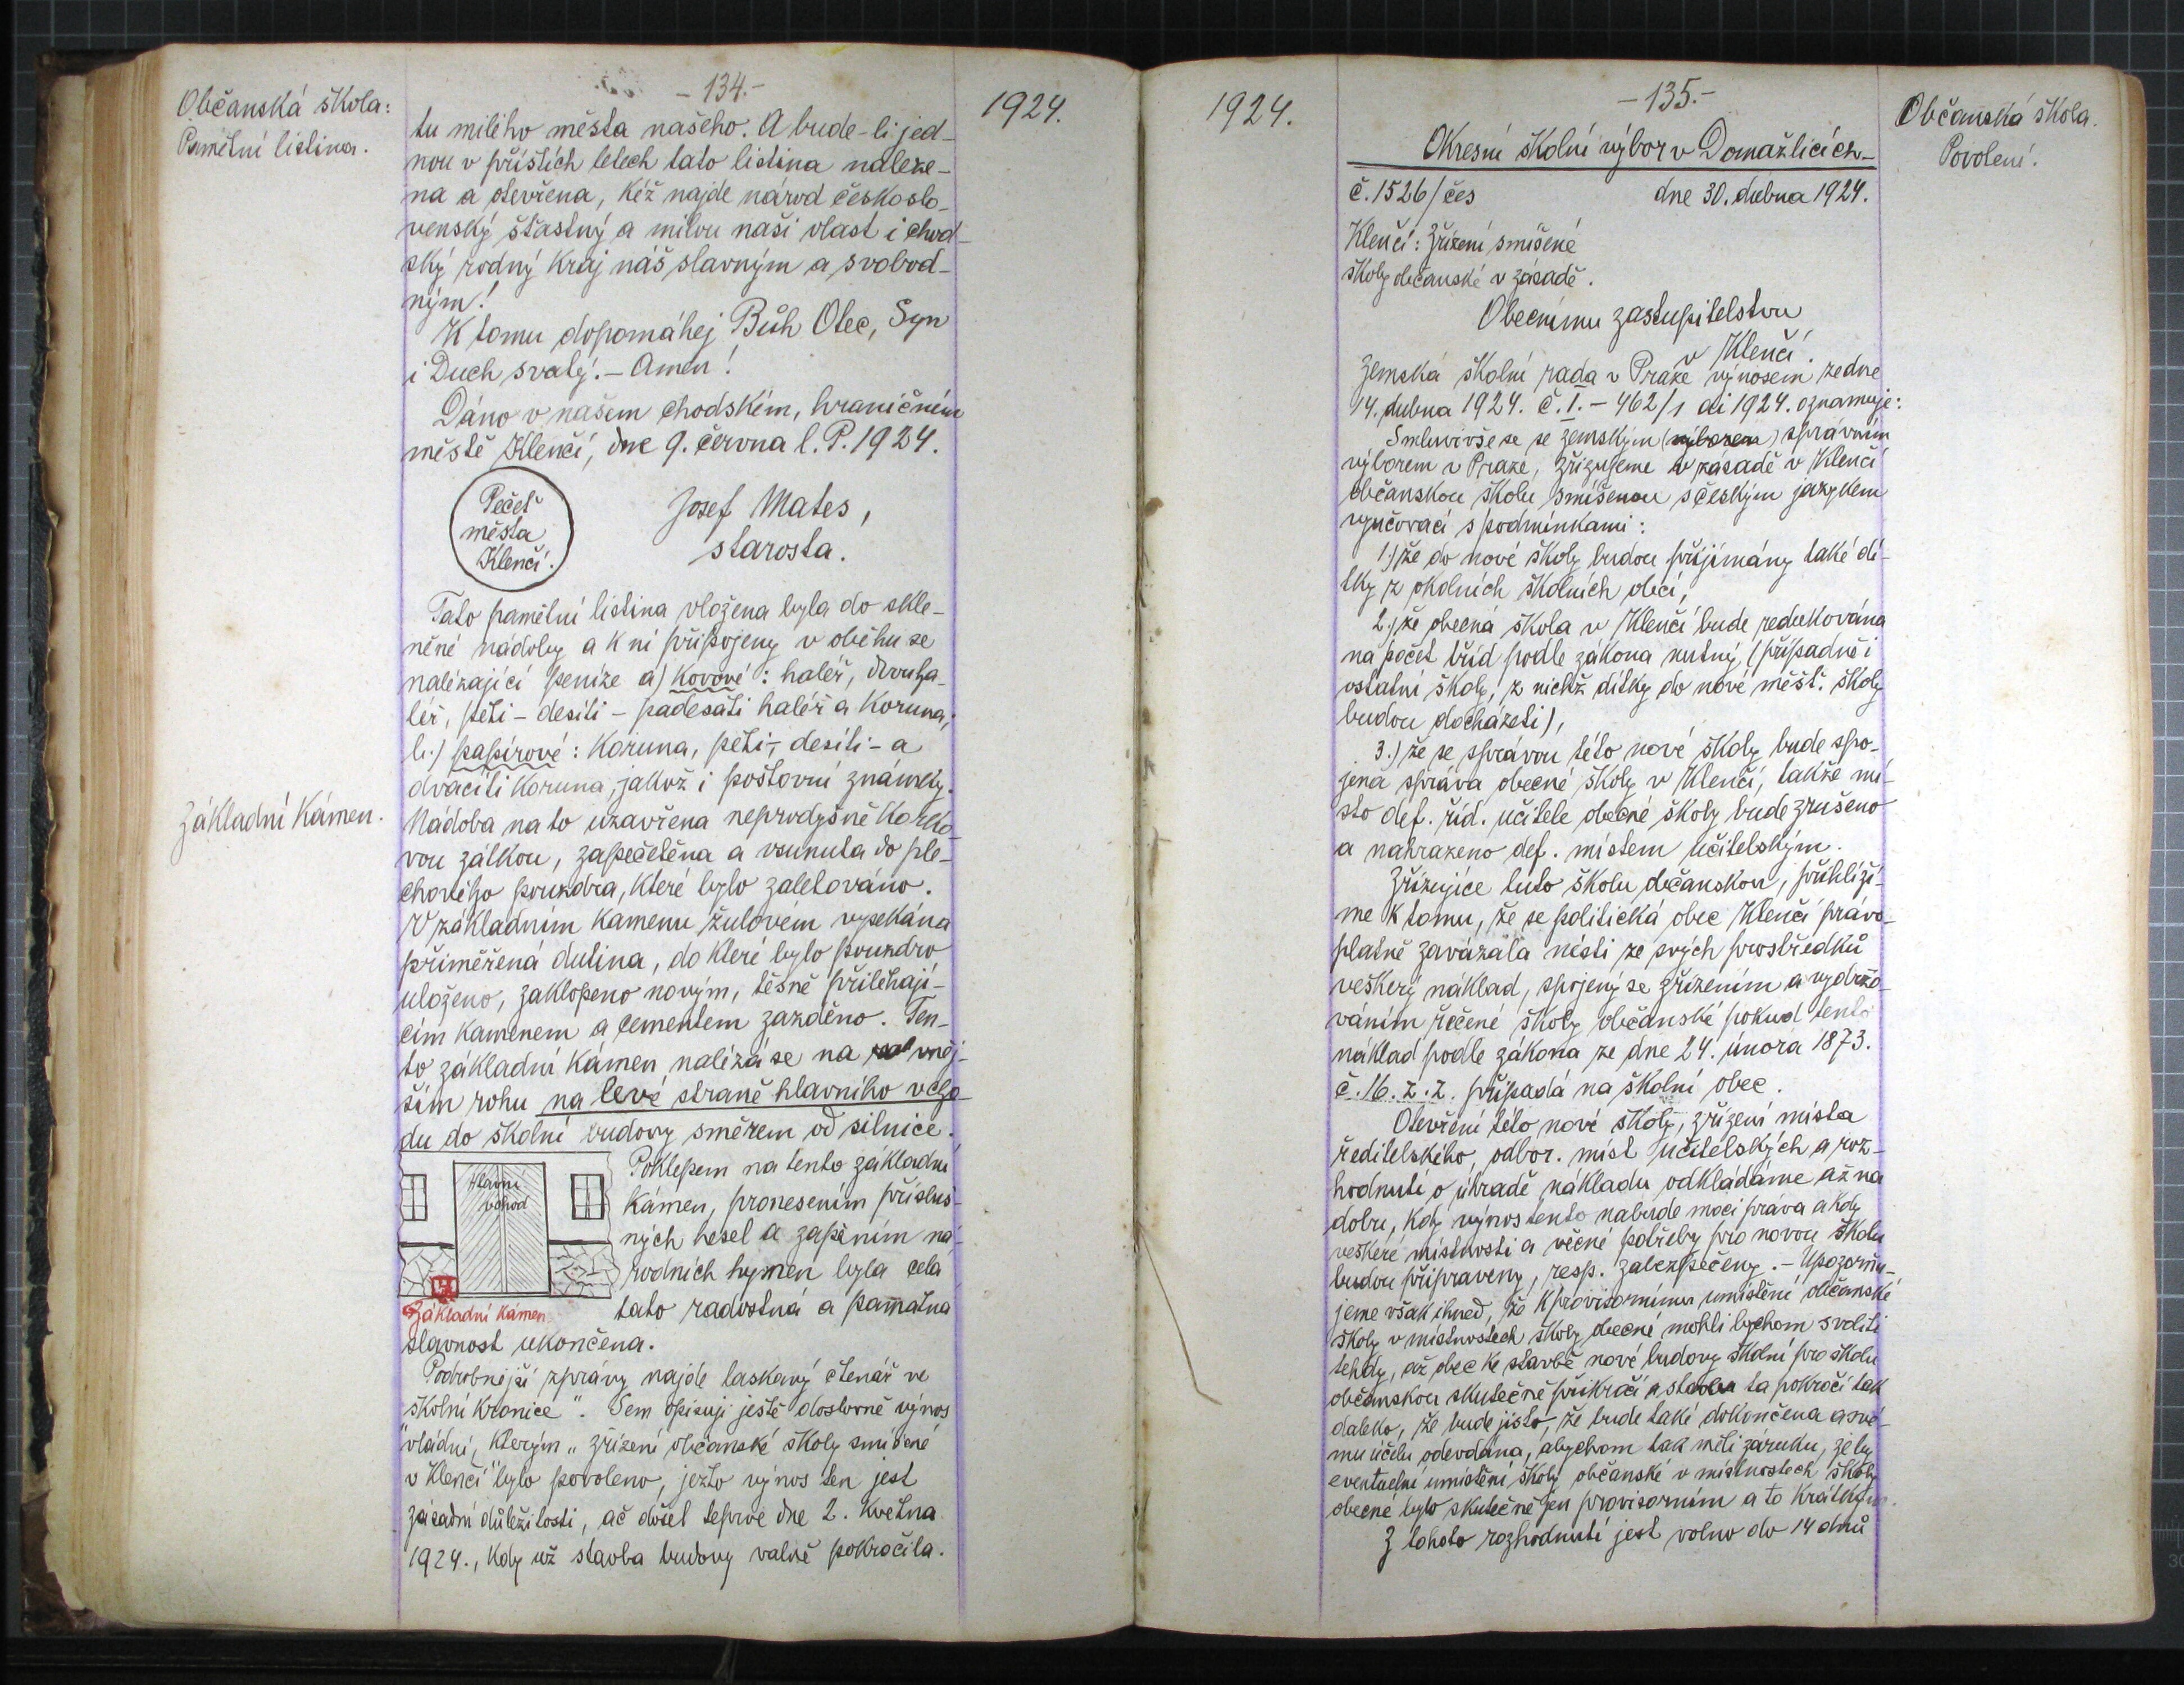 - 134.-
1924.
Občanská škola:
Pamětní listina.
tu milého města našeho. A bude-li jed-
nou v příštích letech tato listina naleze-
na a otevřena, kéž najde národ českoslo-
venský šťastný a milou naši vlast i chod-
ský rodný kraj náš slavným a svobod-
ným!
K tomu dopomáhej Bůh Otec, Syn
i Duch svatý. - Amen!
Dáno v našem chodském, hraničném
městě Klenčí, dne 9. června l. P. 1924.
Pečeť
města
Klenčí.
Josef Mates,
starosta.
Tato pamětní listina vložena byla do skle-
něné nádoby a k ní připojeny v oběhu se
nalézající peníze a) kovové: haléř, dvouha-
léř, pěti - desíti - padesáti haléř a koruna;
b.) papírové: koruna, pěti-, desíti- a
dvacíti koruna, jakož i poštovní známky.
Základní kámen.
Nádoba na to uzavřena neprodyšně korko-
vou zátkou, zapečetěna a vsunuta do ple-
chového pouzdra, které bylo zaletováno.
V základním kamenu žulovém vysekána
přiměřená dutina, do které bylo pouzdro
uloženo, zaklopeno novým, těsně přiléhají-
cím kamenem a cementem zazděno. Ten-
to základní kámen nalézá se na vněj-
ším rohu na levé straně hlavního vcho-
du do školní budovy směrem od silnice.
hlavní
vchod
Základní kámen
Poklepem na tento základní
kámen, pronesením přísluš-
ných hesel a zapěním ná-
rodních hymen byla celá
tato radostná a památná
slavnost ukončena.
Podrobnější zprávy najde laskavý čtenář ve
„školní kronice". Sem opisuji ještě doslovně výnos
vládní, kterým „zřízení občanské školy smíšené
v Klenčí" bylo povoleno, ježto výnos ten jest
zásadní důležitosti, ač došel teprve dne 2. května
1924., kdy už stavba budovy valně pokročila.
1924.
- 135.-
Občanská škola.
Povolení.
Okresní školní výbor v Domažlicích
č. 1526/čes dne 30. dubna 1924.
Klenčí: Zřízení smíšené
školy občanské v zásadě.
Obecnímu zastupitelstvu
v Klenčí.
Zemská školní rada v Praze výnosem ze dne
14. dubna 1924. č. I. - 462/1 ai 1924. oznamuje:
Smluvivše se se zemským (výborem) správním
výborem v Praze, zřizujeme v zásadě v Klenčí
občanskou školu smíšenou s českým jazykem
vyučovací s podmínkami:
1.) že do nové školy budou přijímány také dí-
tky z okolních školních obcí,
2.) že obecná škola v Klenčí bude redukována
na počet tříd podle zákona nutný (případně i
ostatní školy, z nichž dítky do nové měšť. školy
budou docházeti),
3.) že se správou této nové školy bude spo-
jena správa obecné školy v Klenčí, takže mí-
sto def. říd. učitele obecné školy bude zrušeno
a nahrazeno def. místem učitelským.
Zřizujíce tuto školu občanskou, přihlíží-
me k tomu, že se politická obec Klenčí právo-
platně zavázala nésti ze svých prostředků
veškerý náklad, spojený se zřízením a vydržo-
váním řečené školy občanské pokud tento
náklad podle zákona ze dne 24. února 1873.
č. 16. z. z. připadá na školní obec.
Otevření této nové školy, zřízení místa
ředitelského, odbor. míst učitelských a roz-
hodnutí o úhradě nákladu odkládáme až na
dobu, kdy výnos tento nabude moci práva a kdy
veškeré místnosti a věcné potřeby pro novou školu
budou připraveny, resp. zabezpečeny. - Upozorňu-
jeme však ihned, že k provisornímu umístění občanské
školy v místnostech školy obecné mohli bychom svoliti
tehdy, až obec ke stavbě nové budovy školní pro školu
občanskou skutečně přikročí a stavba ta pokročí tak
daleko, že bude jisto, že bude také dokončena a své-
mu účelu odevdána, abychom tak měli záruku, že by
eventuelní umístění školy občanské v místnostech školy
obecné bylo skutečně jen provisorním a to krátkým.
Z tohoto rozhodnutí jest volno do 14 dnů